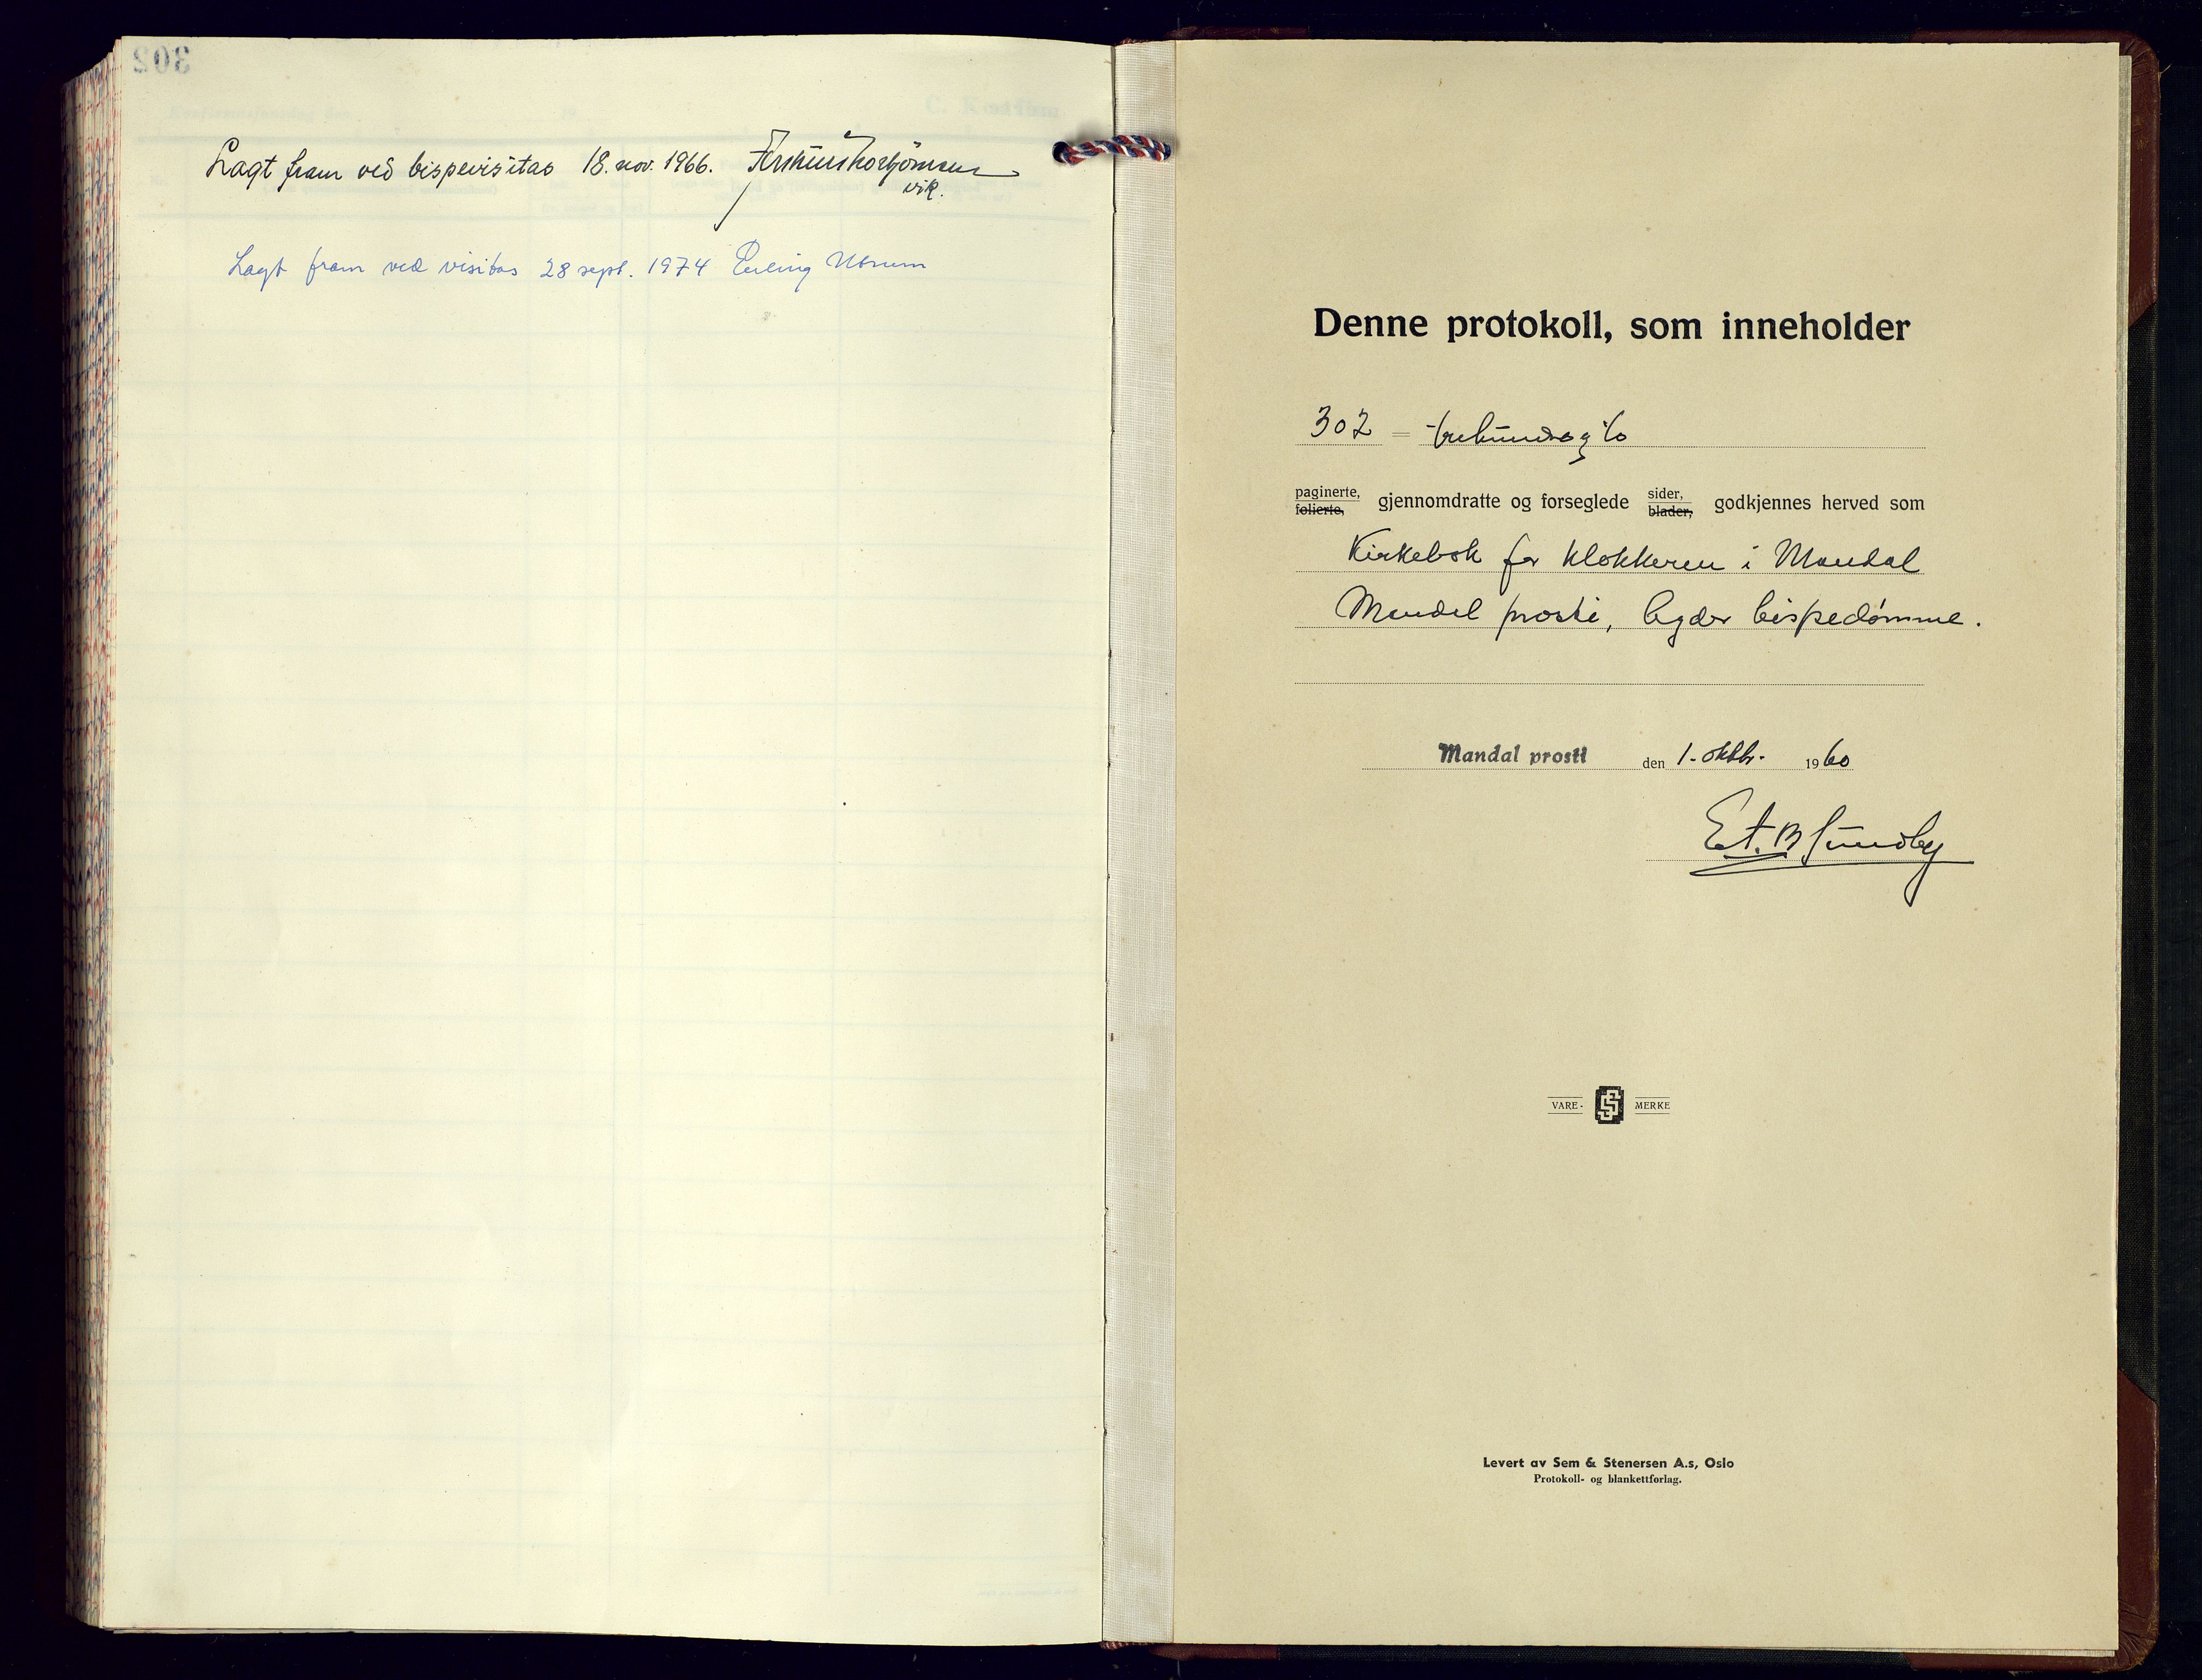 302
Lagt fram ved bispevisitas 18. nov. 1966.
vik.
Lagt fram ved visitas 28 sept. 1974 Erling Utnem
Denne protokoll, som inneholder
302 = trehundreogto
paginerte, folierte, gjennomdratte og forseglede sider, blader, godkjennes herved som
Kirkebok for klokkeren i Mandal
Mandal prosti, Agder bispedømme.
Mandal prosti den 1. oktbr. 1960
Et. B Sundby
VARE- SS MERKE
Levert av Sem & Stenersen A.s, Oslo
Protokoll- og blankettforlag.